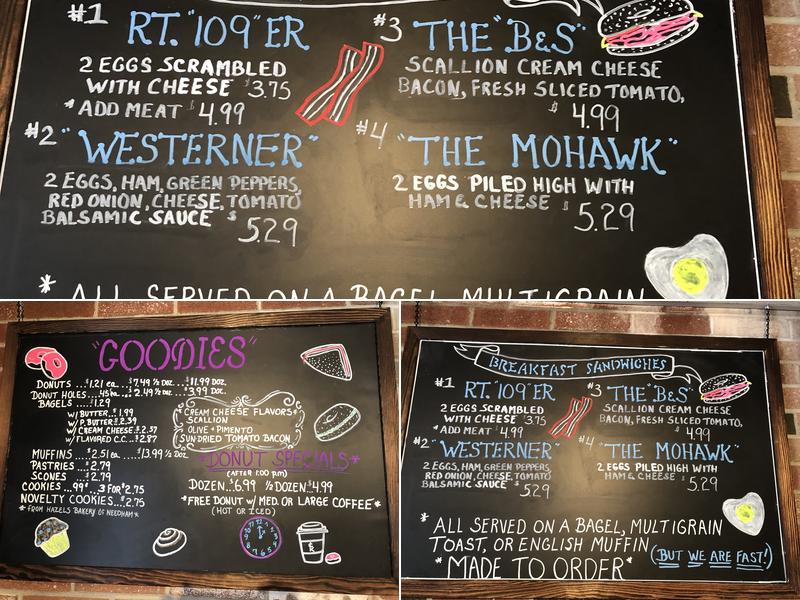 #1 RT. "109" ER
2 EGGS SCRAMBLED
WITH CHEESE $3.75
*ADD MEAT $4.99
#3 THE "B&S"
SCALLION CREAM CHEESE
BACON, FRESH SLICED TOMATO,
$4.99
#2 "WESTERNER"
2 EGGS, HAM, GREEN PEPPERS,
RED ONION, CHEESE, TOMATO
BALSAMIC SAUCE $5.29
#4 "THE MOHAWK"
2 EGGS PILED HIGH WITH
HAM & CHEESE $5.29
* ALL SERVED ON A BAGEL, MULTIGRAIN
"GOODIES"
DONUTS...$1.21 ea...$7.49 ½ DOZ...$11.99 DOZ.
DONUT HOLES...45¢ ea...$2.49 ½ DOZ...$3.99 DOZ.
BAGELS...$1.29
W/ BUTTER...$1.99
W/ P. BUTTER...$2.39
W/ CREAM CHEESE...$2.57
W/ FLAVORED C.C....$2.87
CREAM CHEESE FLAVORS
SCALLION
OLIVE & PIMENTO
SUNDRIED TOMATO BACON
MUFFINS...$2.51 ea....$13.99 ½ DOZ.
PASTRIES...$2.79
SCONES...$2.79
COOKIES...99¢ 3 FOR $2.75
NOVELTY COOKIES...$2.75
*FROM HAZELS BAKERY OF NEEDHAM*
*DONUT SPECIALS*
(AFTER 1:00 p.m)
DOZEN..$6.99 ½ DOZEN..$4.99
*FREE DONUT W/ MED. OR LARGE COFFEE*
(HOT OR ICED)
BREAKFAST SANDWICHES
#1 RT. "109" ER
2 EGGS SCRAMBLED
WITH CHEESE $3.75
*ADD MEAT $4.99
#3 THE "B&S"
SCALLION CREAM CHEESE
BACON, FRESH SLICED TOMATO,
$4.99
#2 "WESTERNER"
2 EGGS, HAM, GREEN PEPPERS,
RED ONION, CHEESE, TOMATO
BALSAMIC SAUCE $5.29
#4 "THE MOHAWK"
2 EGGS PILED HIGH WITH
HAM & CHEESE $5.29
* ALL SERVED ON A BAGEL, MULTIGRAIN
TOAST, OR ENGLISH MUFFIN
*MADE TO ORDER* (BUT WE ARE FAST!)